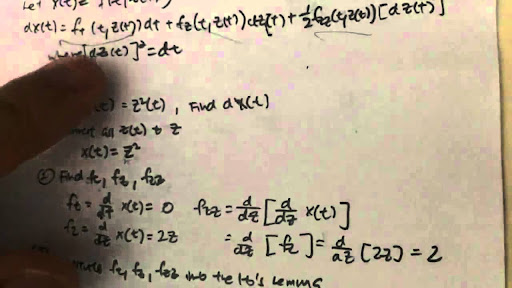 Let X(t)=
dX(t) = f_t (t, Z(t)) dt + f_z (t, Z(t)) dZ(t) + 1/2 f_zz (t, Z(t)) [dZ(t)
where [dZ(t)]² = dt
(t) = Z²(t), Find dX(t)
all Z(t) to Z
X(t) = Z²
② Find f_t, f_z, f_zz
f_t = d/dt X(t) = 0 f_zz = d/dz [d/dz X(t)]
f_z = d/dz X(t) = 2Z = d/dz [f_z] = d/dz [2Z] = 2
f_t, f_z, f_zz into the Ito's Lemma